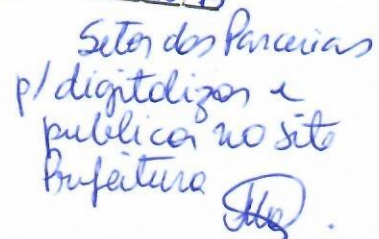 Setor das Parcerias
p/ digitalizar e
publicar no site
Prefeitura